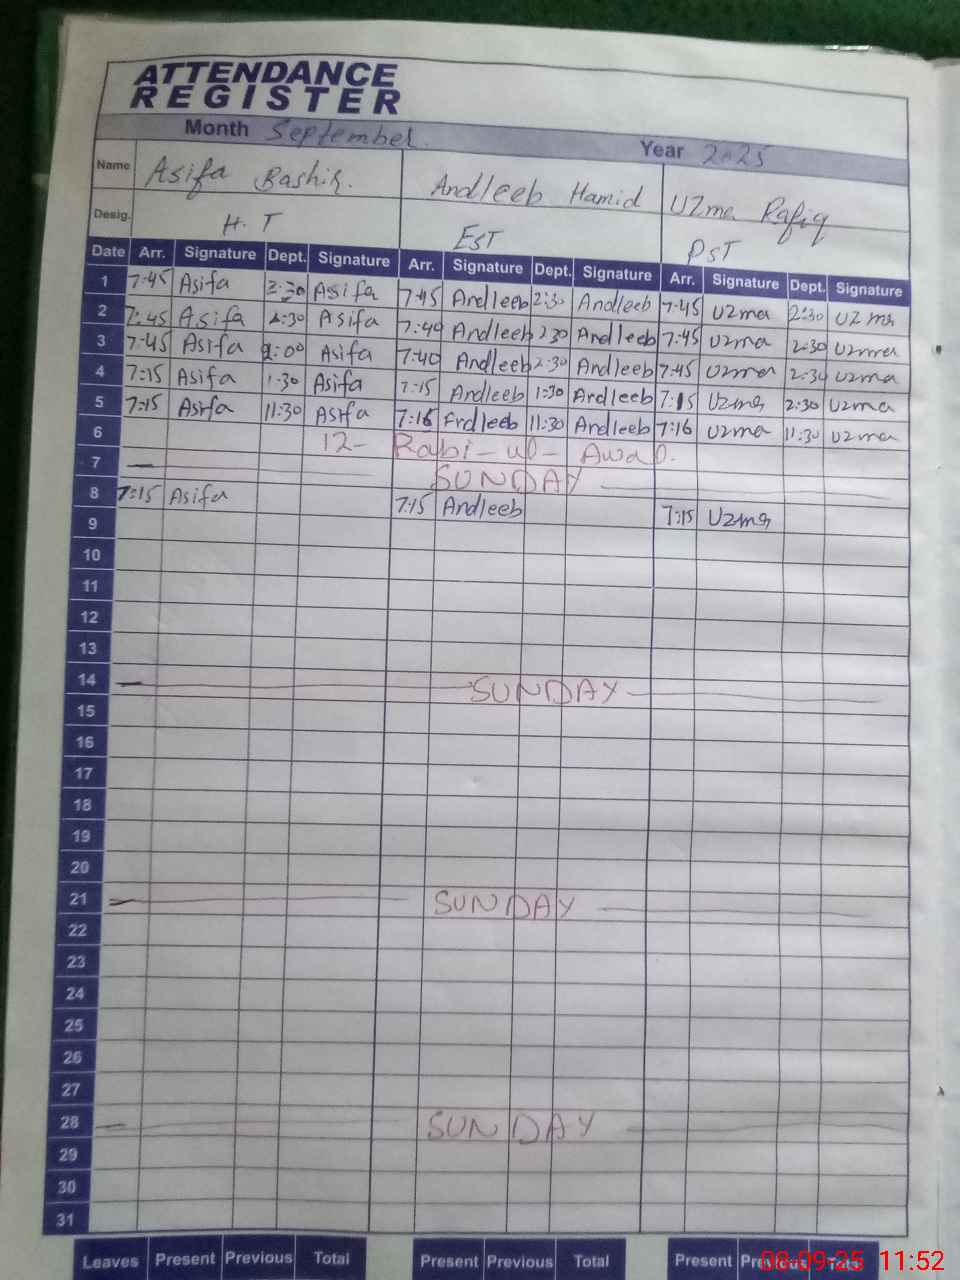 ATTENDANCE
REGISTER
Month September. Year 2025
Name Asifa Bashir. Andleeb Hamid UZma Rafiq
Desig. H.T EST PST
Date Arr. Signature Dept. Signature Arr. Signature Dept. Signature Arr. Signature Dept. Signature
1 7:45 Asifa 2:30 Asifa 7:45 Andleeb 2:30 Andleeb 7:45 UZma 2:30 UZma
2 7:45 Asifa 2:30 Asifa 7:40 Andleeb 2:30 Andleeb 7:45 UZma 2:30 UZma
3 7:45 Asifa 2:00 Asifa 7:40 Andleeb 2:30 Andleeb 7:45 UZma 2:30 UZma
4 7:15 Asifa 1:30 Asifa 7:15 Andleeb 1:30 Andleeb 7:15 UZma 2:30 UZma
5 7:15 Asifa 11:30 Asifa 7:16 Andleeb 11:30 Andleeb 7:16 UZma 11:30 UZma
6 12- Rabi-ul-Awal.
7 SUNDAY
8 7:15 Asifa 7:15 Andleeb 7:15 UZma
9
10
11
12
13
14 SUNDAY
15
16
17
18
19
20
21 SUNDAY
22
23
24
25
26
27
28 SUNDAY
29
30
31
Leaves Present Previous Total Present Previous Total Present Previous Total
08-09-25 11:52